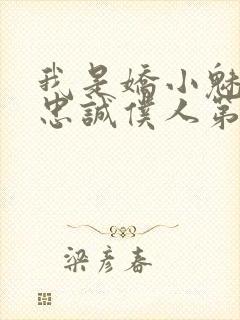 我是嬌小魅
忠誠僕人第
梁彥春